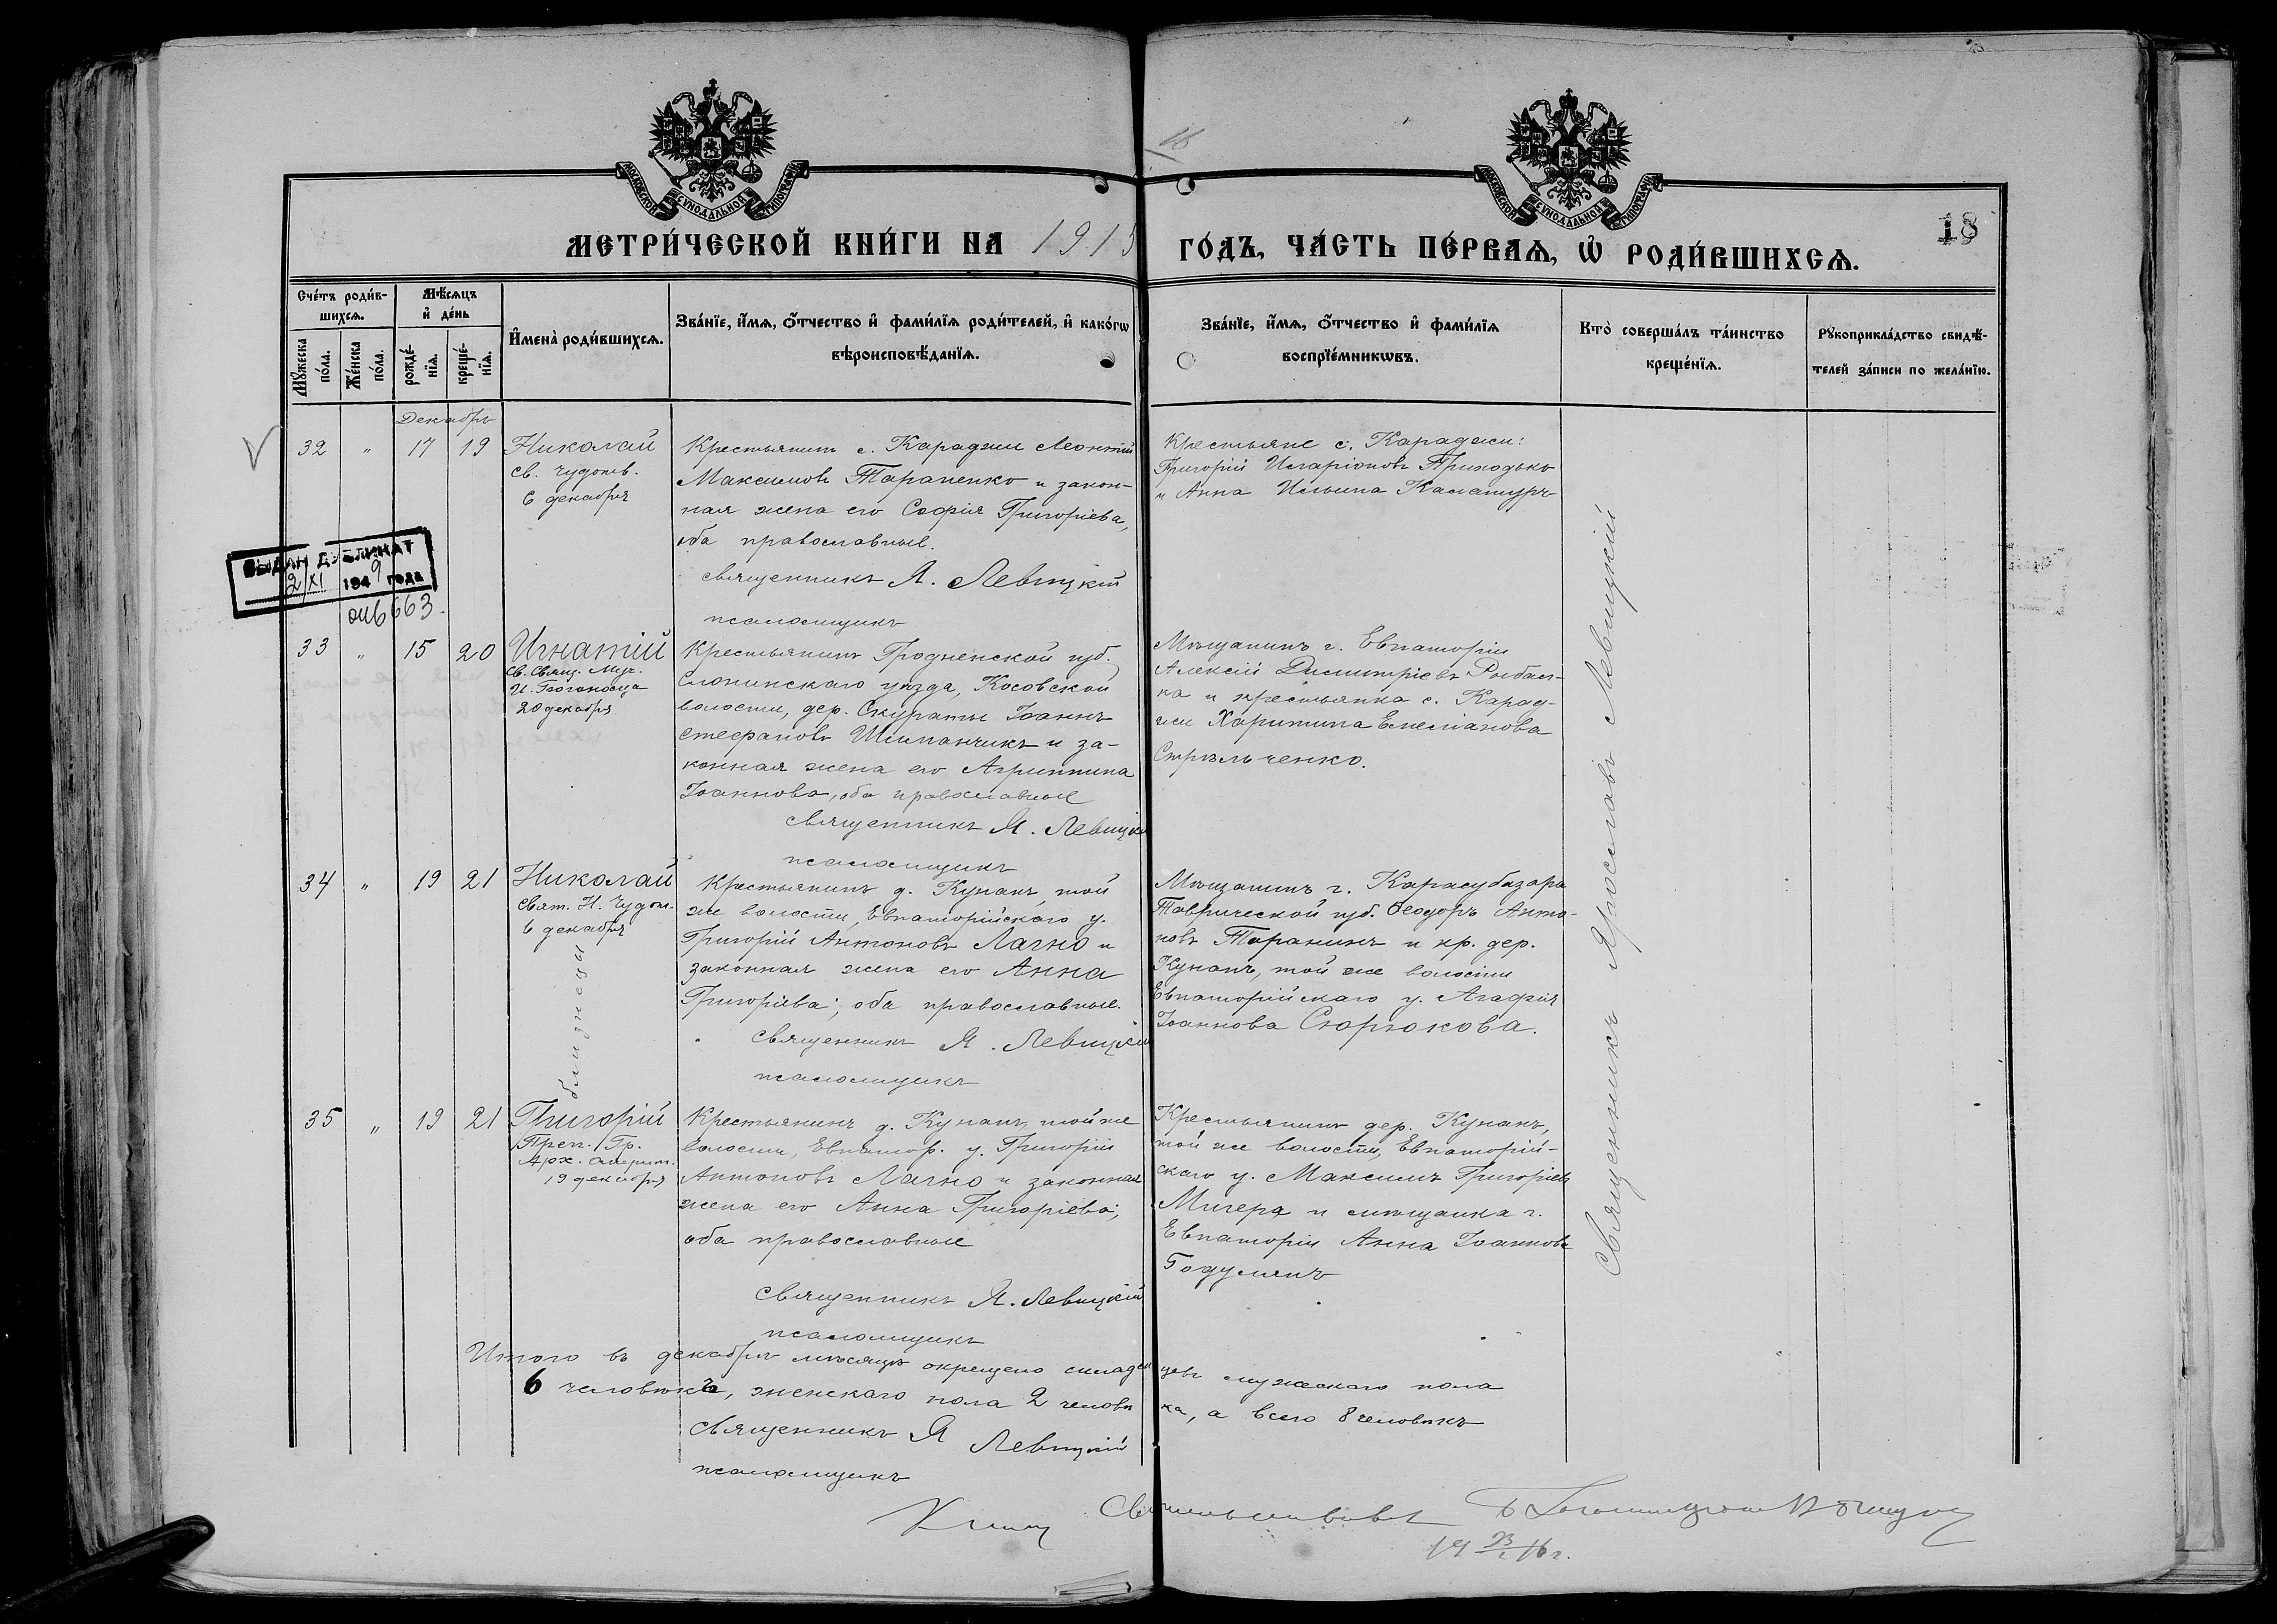 16
МОСКОВСКОЙ СѴНОДАЛЬНОЙ ТИПОГРАФІИ
МОСКОВСКОЙ СѴНОДАЛЬНОЙ ТИПОГРАФІИ
18
МЕТРИ́ЧЕСКОЙ КНИ́ГИ НА 1915 ГО́ДЪ, ЧА́СТЬ ПЕ́РВАѦ, Ѽ РОДИ́ВШИХСѦ.
Сче́тъ роди́в-
шихсѧ.
Мꙋ́жеска по́ла.
Же́нска по́ла.
Мѣ́сѧцъ
и҆ де́нь
рожде́-
нїѧ.
креще́-
нїѧ.
И҆мена̀ роди́вшихсѧ.
Зва́нїе, и҆́мѧ, о҆́тчество и҆ фами́лїѧ роди́телей, и҆ како́гѡ
вѣроисповѣ́данїѧ.
Зва́нїе, и҆́мѧ, о҆́тчество и҆ фами́лїѧ
воспрїе́мникѡвъ.
Кто̀ соверша́лъ та́инство
креще́нїѧ.
Рꙋкоприкла́дство свидѣ́-
телей за́писи по жела́нїю.
Декабрь
32 " 17 19
Николай
св. чудотв.
6 декабря
Крестьянинъ с. Караджи Леонтій
Максимовъ Тараненко и закон-
ная жена его Софія Григоріева,
оба православные.
священникъ Я. Левицкій
псаломщикъ
Крестьяне с. Караджи:
Григорій Иларіоновъ Приходько
и Анна Ильина Каламуръ
ВЫДАН ДУБЛИКАТ
2/XI 1949 года
663
33 " 15 20
Игнатій
св. Свящ. Муч.
И. Богоносца
20 декабря
Крестьянинъ Гродненской губ.
Слонинскаго уѣзда, Косовской
волости, дер. Скураты Іоаннъ
Стефановъ Шиманчикъ и за-
конная жена его Агриппина
Іоаннова, оба православные
священникъ Я. Левицкій
псаломщикъ
Мѣщанинъ г. Евпаторіи
Алексій Димитріевъ Рыбал-
ка и крестьянка с. Карад-
жи Харитина Емеліанова
Стрѣльченко.
34 " 19 21
Николай
Свят. Н. Чудот.
6 декабря
близнецы
Крестьянинъ д. Кунанъ, той
же волости, Евпаторійскаго у.
Григорій Антоновъ Лагно и
законная жена его Анна
Григоріева; оба православные.
священникъ Я. Левицкій
псаломщикъ
Мѣщанинъ г. Карасубазара
Таврической губ. Ѳеодоръ Анто-
новъ Таранинъ и кр. дер.
Кунанъ, той же волости
Евпаторійскаго у. Агафія
Іоаннова Сюрюкова.
35 " 19 21
Григорій
Преп. Гр.
Арх. Омерит.
19 декабря
Крестьянинъ д. Кунанъ, той же
волости, Евпатор. у. Григорій
Антоновъ Лагно и законная
жена его Анна Григоріева;
оба православные
священникъ Я. Левицкій
псаломщикъ
Крестьянинъ дер. Кунанъ,
той же волости, Евпаторій-
скаго у. Максимъ Григоріевъ
Мигера и мѣщанка г.
Евпаторіи Анна Іоаннова
Годулянъ
Священникъ Ярославъ Левицкій
Итого въ декабрѣ мѣсяцѣ окрещено младенцевъ мужескаго пола
6 человѣкъ, женскаго пола 2 человѣка, а всего 8 человѣкъ
священникъ Я Левицкій
псаломщикъ